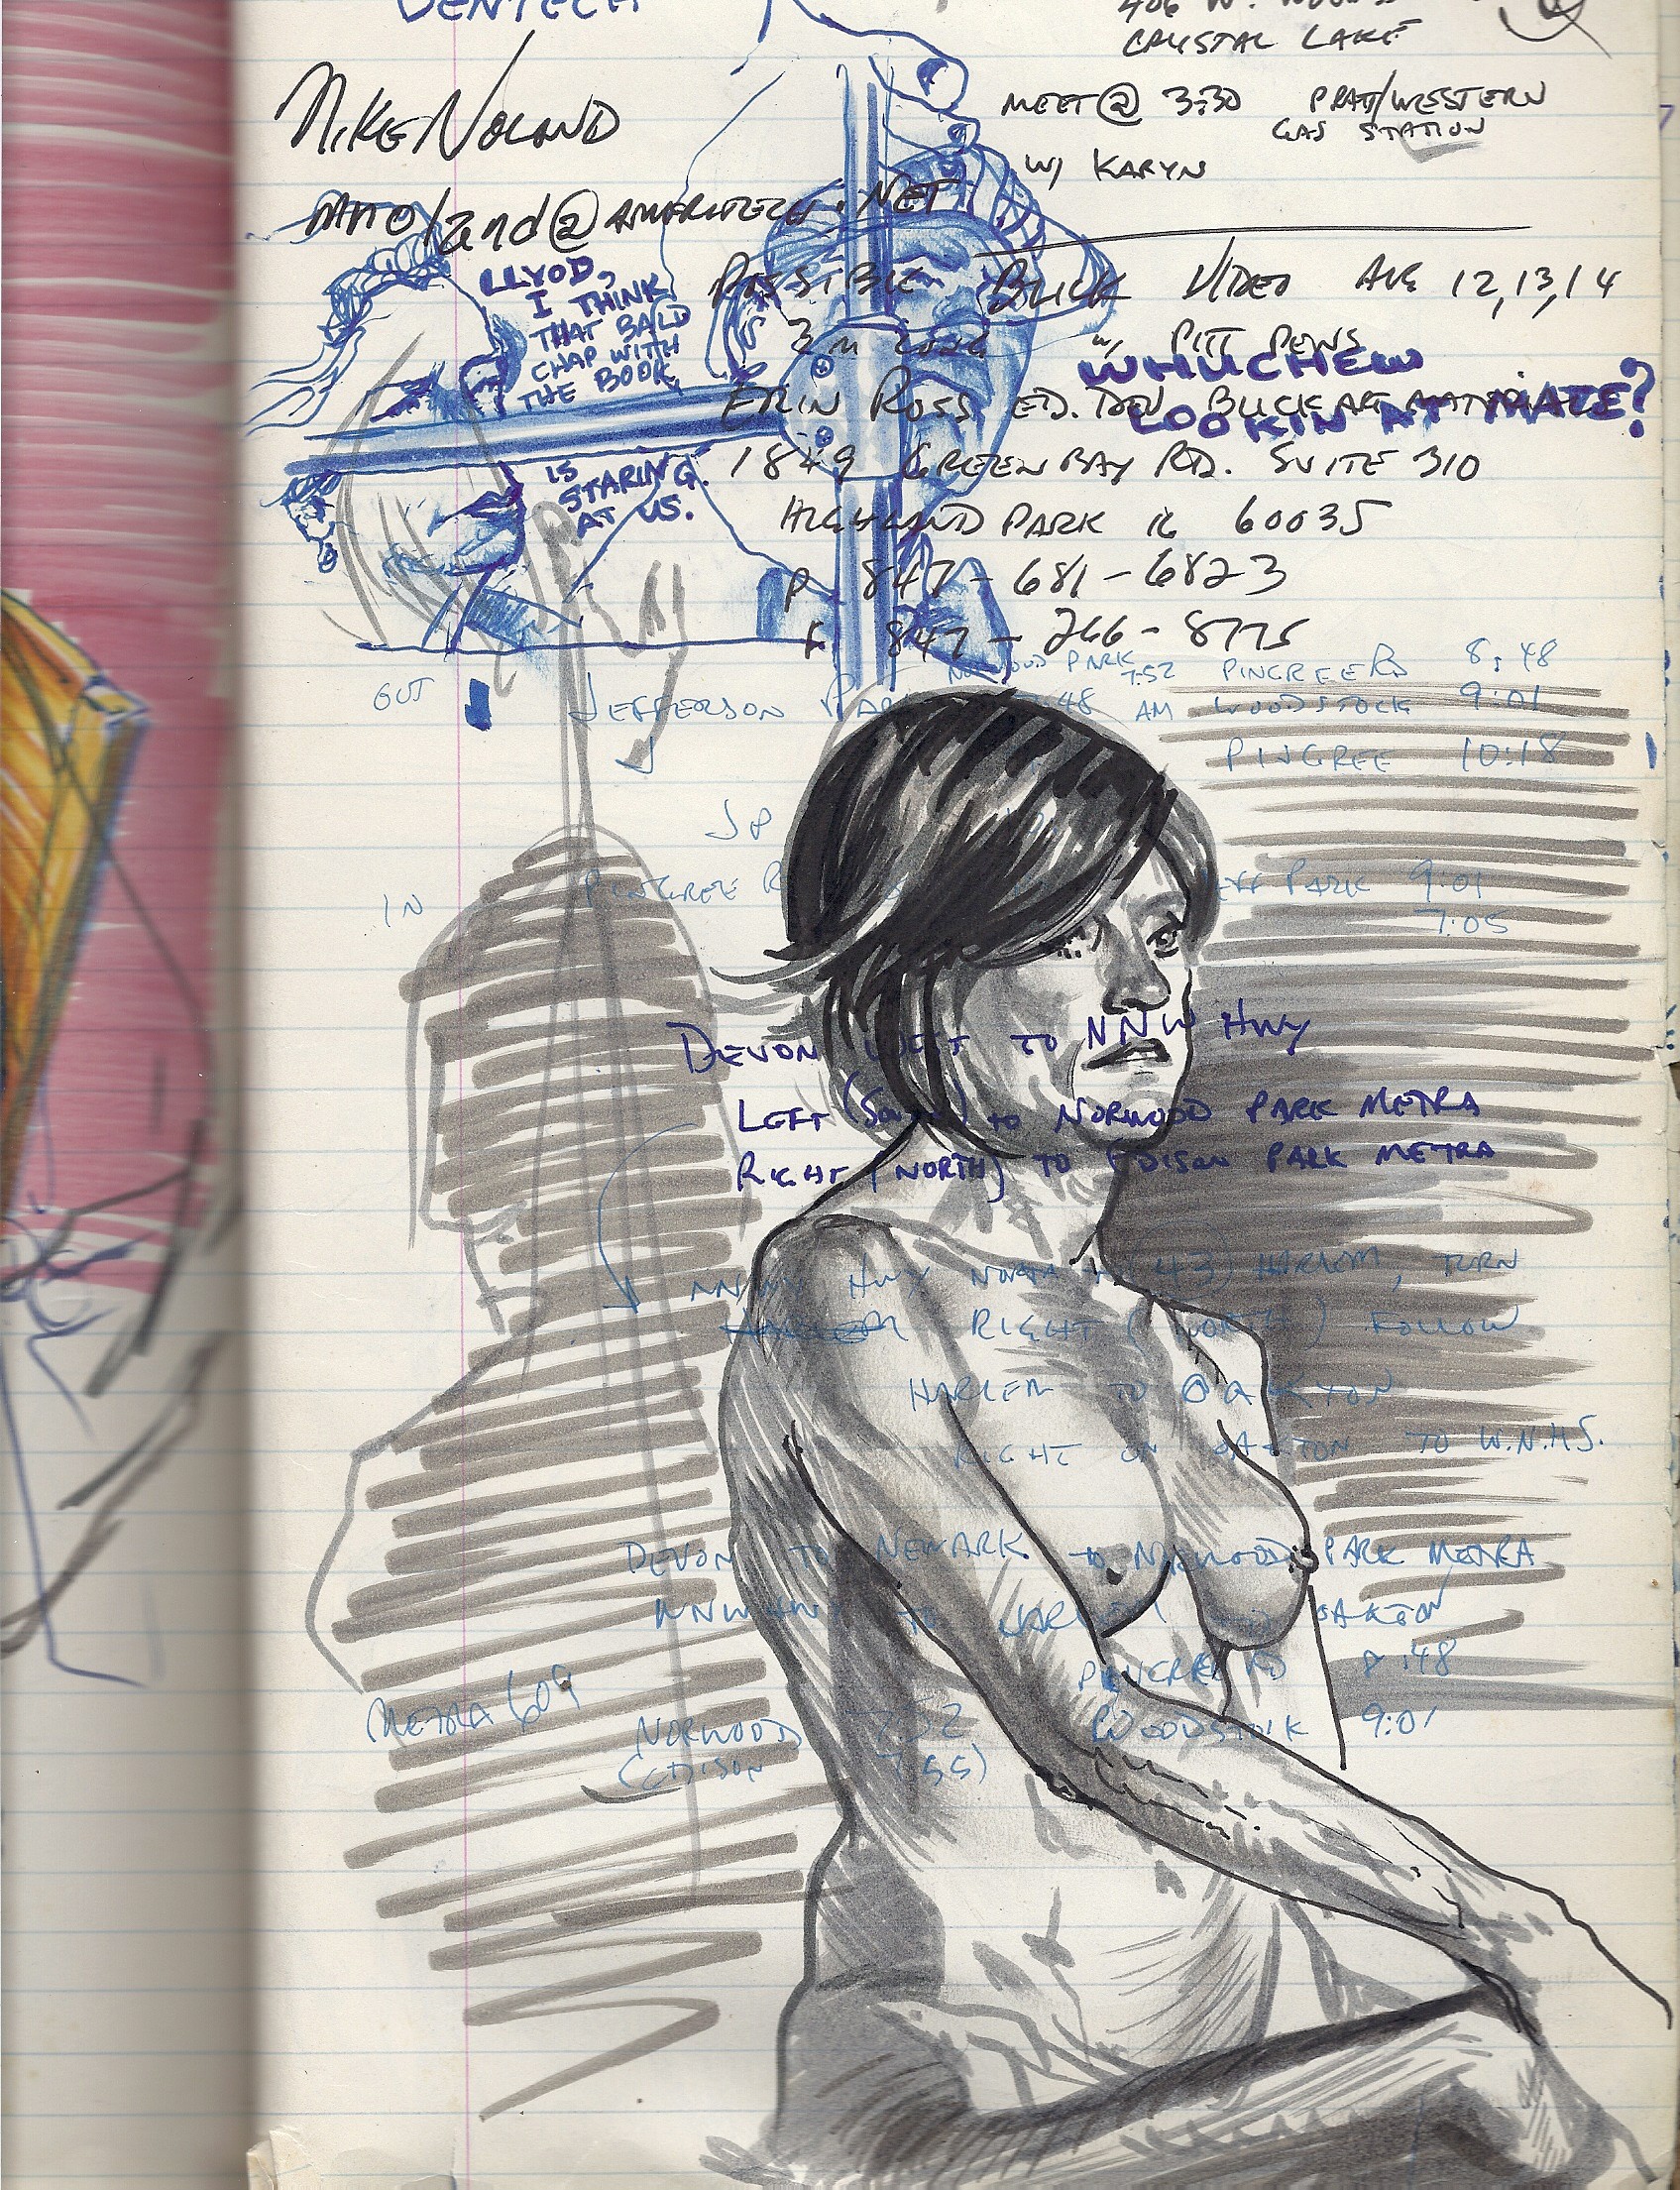 DENTECH
CRYSTAL LAKE
MIKE NOLAND
MEET @ 3:30 PRATT/WESTERN
GAS STATION
W/ KARYN
mnoland@AMERITECH.NET
LLYOD,
I THINK
THAT BALD
CHAP WITH
THE BOOK
IS
STARING
AT US.
POSSIBLE BLICK VIDEO AUG 12,13,14
W/ PITT PENS
WHUCHEW
LOOKIN AT MATE?
ERIN ROSS ED. DEV BLICK ART MATERIALS
1849 GREEN BAY RD. SUITE 310
HIGHLAND PARK IL 60035
P 847-681-6823
F 847-266-8775
OUT JEFFERSON PARK 7:48 AM
NORWOOD PARK 7:52
PINGREE RD 8:48
WOODSTOCK 9:01
PINGREE 10:18
JP
IN PINGREE R JEFF PARK 9:01
7:05
DEVON WEST TO NNW HWY
LEFT (SOUTH) TO NORWOOD PARK METRA
RIGHT (NORTH) TO EDISON PARK METRA
NNW HWY NORTH TO (43) HARLEM, TURN
RIGHT (NORTH) FOLLOW
HARLEM TO OAKTON
RIGHT ON OAKTON TO W.N.H.S.
DEVON TO NEWARK TO NORWOOD PARK METRA
NNW HWY TO HARLEM TO OAKTON
PINGREE RD 8:48
METRA 609 NORWOOD 7:52 WOODSTOCK 9:01
(EDISON 7:55)